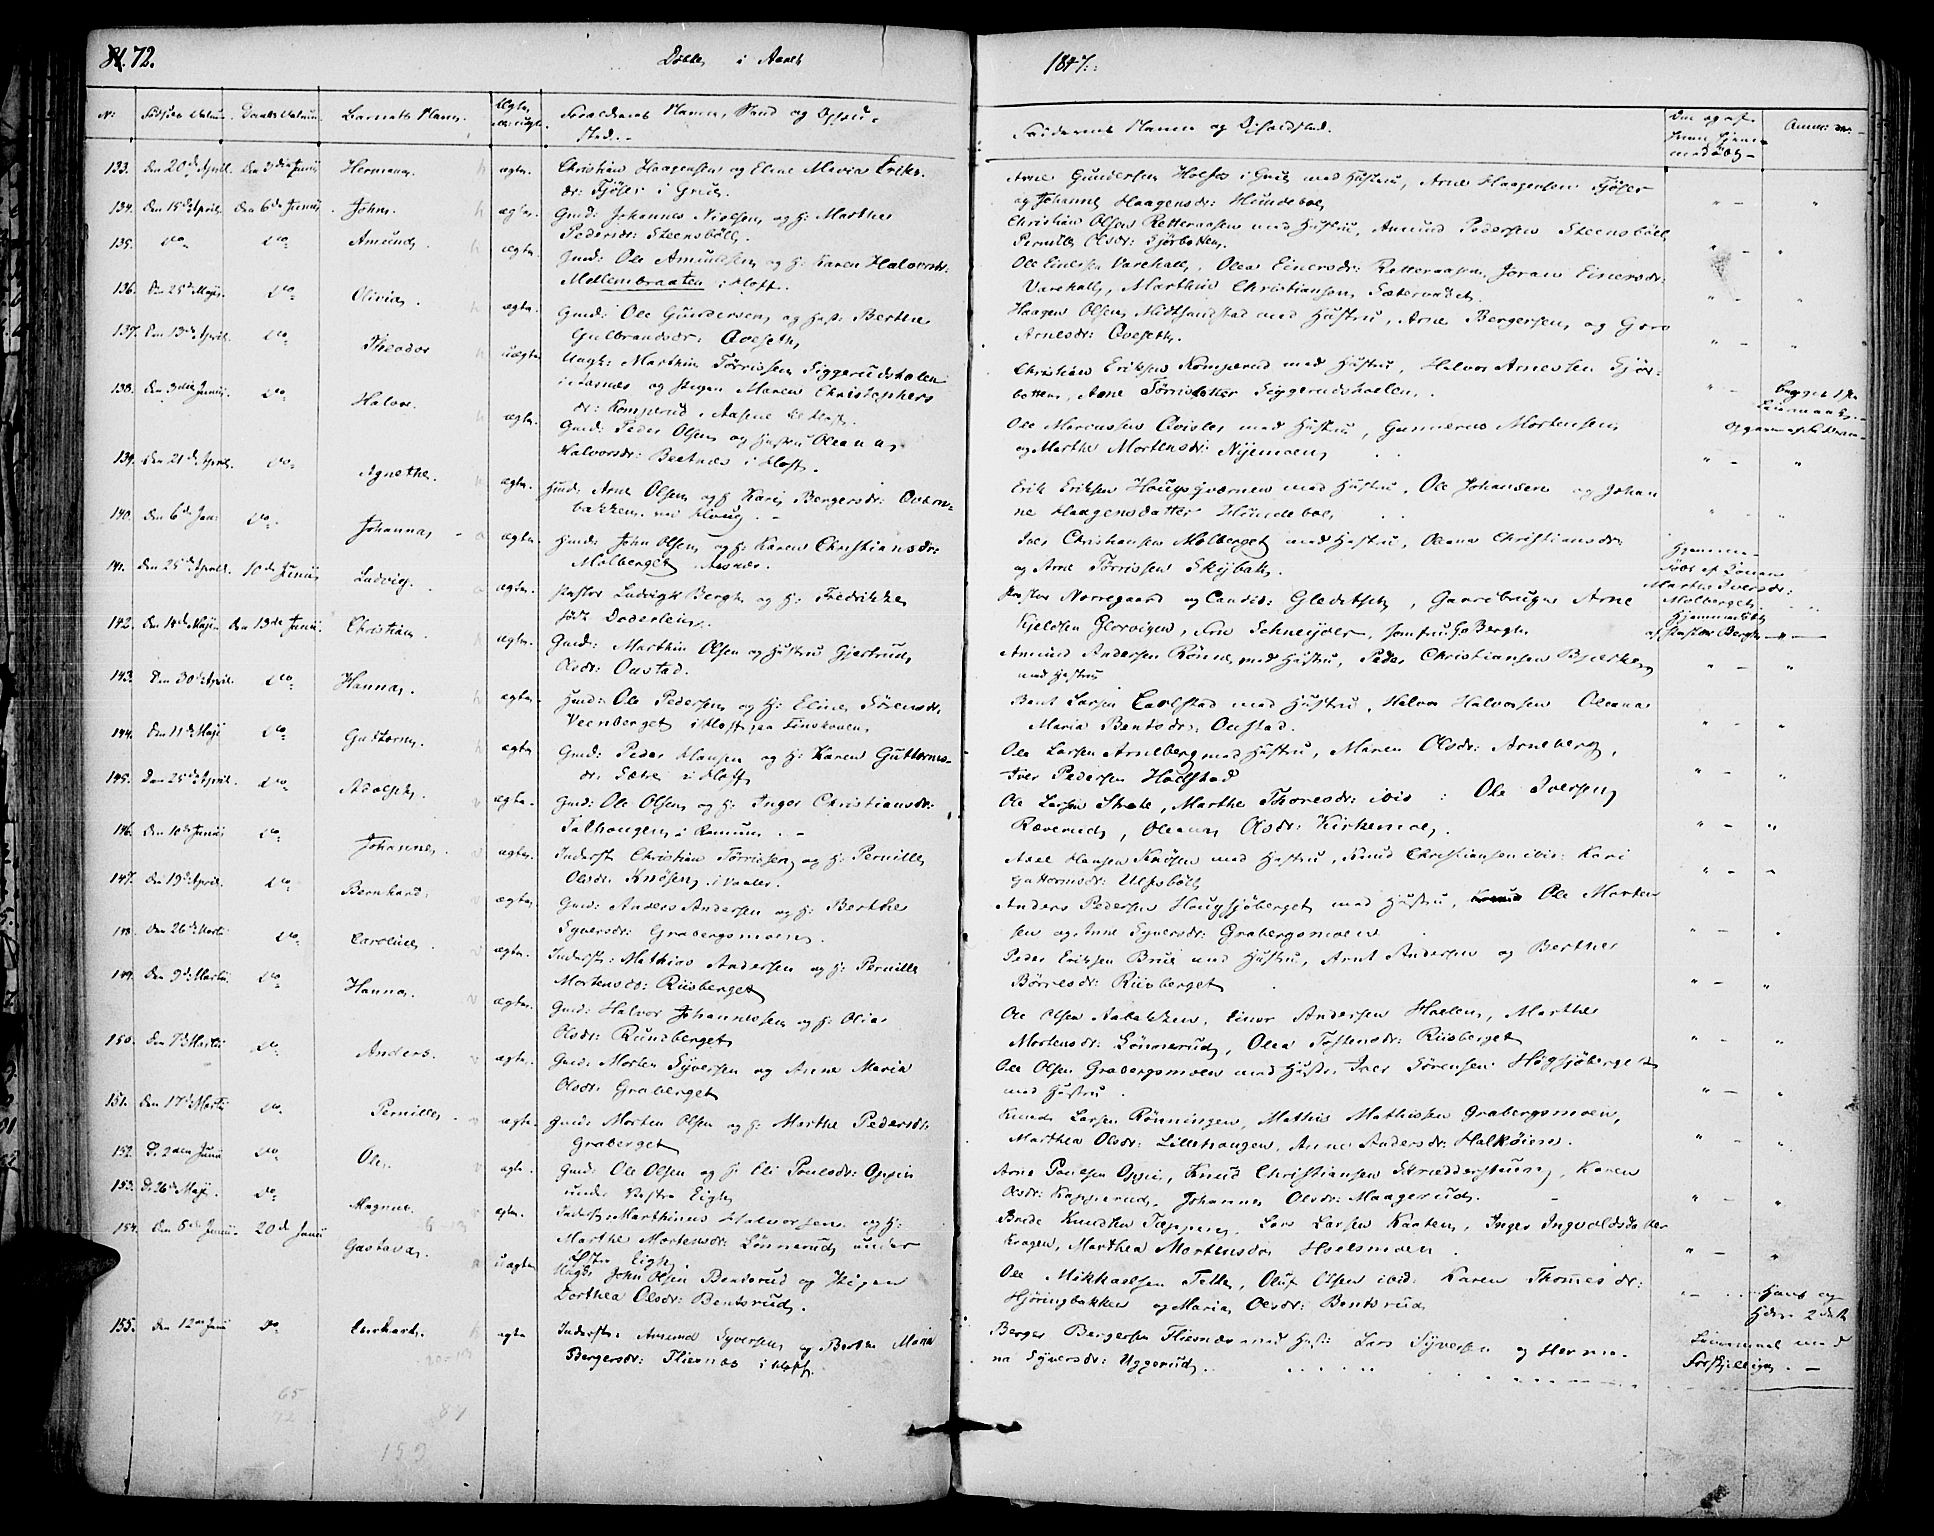 72. Døbte i Aaret 1847.
No Fødsels Datum. Daabs Datum. Barnets Navn. Ægte el. uægte Forældrenes Navne, Stand og Opholdsted. Faddernes Navne og Opholdsted. Anm:
133. Den 20de April. Den 3die Junii Herman. ægte. Christian Haagensen og Eline Maria Eriks-
dr: Tjöser i Grue. Arne Gundersen i Grue med Hustru, Arne Haagensen Tjöser
og Johanne Haagensdr: Hundeboe
134. Den 15de April. Den 6te Junii. John. ægte. Gmd: Johannes Nielsen og H: Marthe
Pedersdr: Steensböll. Christian Olsen Rotteraasen med Hustru, Amund Pedersen Steensböll
Pernille Olsdr: Sjörbotten.
135. do do Amund. ægte. Gmd: Ole Amundsen og H: Karen Halvorsdr:
Mellembraaten i Hoff. Ole Einersen Varehall, Olea Einersdr: Rotteraasen Joran Einersdr:
Varehall, Marthin Christiansen Sætervadet.
136. Den 25de Maji. do Olivia. ægte. Gmd: Ole Gundersen og Hust: Berthe
Gulbrandsdr: Qveseth, Haagen Olsen Midtsundstad med Hustru, Arne Bergersen og Goro
Arnesdr: Qveseth.
137. Den 13de April. do Theodor uægte. Ungk: Marthin Törrissen Siggerudstalen
i Aasnes og Pigen Maren Christophers
dr: Komperud, Aasnes Christian Eriksen Komperud med Hustru, Halvor Arnesen Sjör-
botten, Arne Siggerudshoelen. begges 1ste
Leiermaal
138. Den 3die Junii. do Halvor. ægte. Gmd: Peder Olsen og Hustru Oleana
Halvorsdr: Beetnæs i Hoff. Ole Marcussen Qvisler med Hustru, Gunnerus Mortensen
og Marthe Mortensdr: Nyemoen
139. Den 21de April. do Agnethe. ægte. Hmd: Arne Olsen og H: Kari Bergersdr: Qværn-
bakken Erik Eriksen Hougsqværnen med Hustru, Ole Johansen og Johan
ne Haagensdatter Hundeboe
140. Den 6te Jan: do Johanna. ægte. Hmd: John Olsen og H: Karen Christiansdr:
Molberget Aasnæs. Iver Christiansen Molberget med Hustru, Oleana Christiansdr:
og Arne Törrissen Skybak. Hjemme-
døbt af Konen
Marthe Iversdr:
Molberget
141. Den 25de April. 10de Junii Ludvig. ægte. Pastor Ludvigh Bergh og H: Fredrikke
född Doderlein. Pastor Norregaard og Candid: Gleditsch, Arne
Kjeldsen Glorvigen, Frn Schneijder, Bergh. Hjemmedøbt
af Pastor Bergh
142. Den 14de Maji Den 13de Junii. Christian. ægte. Gmd: Marthin Olsen og Hustru Gjertrud
Olsdr: Oustad. Amund Andersen Rönne med Hustru, Peder Christiansen Bjerke
med Hustru
143. Den 30te April. do Hanna. ægte. Hmd: Ole Pedersen og H: Eline Sörensdr:
Veenberget i Hoff paa Finskoven. Bent Larsen Earlstad med Hustru, Halvor Halvorsen Oleana
Maria Bentsdr: Oustad.
144. Den 11te Maji do Guttorm. ægte. Gmd: Peder Hansen og H: Karen Guttorms-
dr: Sætre i Hoff Ole Larsen Arneberg med Hustru, Maren Olsdr: Arneberg,
Iver Pedersen Hoelstad
145. Den 25de April. do Adolph. ægte. Gmd: Ole Olsen og H: Inger Christiansdr:
Talhaugen i Romun. Ole Larsen Strate, Marthe Thoresdr: ibid: Ole Iversen
Ræverud, Oleana Olsdr: Kirkemoe.
146. Den 10de Junii do Johanne. ægte. Inderst Christian Törrissen og H: Pernille
Olsdr: Knösen i Vaaler. Axel Hansen Knösen med Hustru, Knud Christiansen ibid: Kari
Guttormsdr: Ulfsböll
147. Den 19de April. do Bernhard. ægte. Gmd: Anders Andersen og H: Berthe
Syversdr: Grabergsmoen. Anders Pedersen Hougsjöberget med Hustru, Ole Morten
sen og Anne Syversdr: Grabergsmoen
148. Den 26de Marts do Caroline. ægte. Inderst: Mathias Andersen og H: Pernille
Mortensdr: Riisberget Peder Eriksen Brue med Hustru, Arnt Andersen og Berthe
Börresdr: Riisberget
149. Den 9de Martii. do Hanna. ægte. Gmd: Halvor Johannessen og H: Olia
Olsdr: Rundberget Ole Olsen Aabakken, Einer Andersen Hoelen, Marthe
Mortensdr: Lönnerud, Olea Tostensdr: Riisberget
150. Den 7de Martii do Anders. ægte. Gmd: Morten Syversen og Anne Maria
Olsdr: Graberget Ole Olsen Grabergsmoen med Hustr: Iver Sörensen Högsjöberget
med Hustru.
151. Den 17de Martii do Pernille. ægte. Gmd: Morten Olsen og H: Marthe Pedersdr:
Graberget Larsen Rönningen, Mathis Mathissen Grabergsmoen,
Marthea Olsdr: Lillehaugen, Anne Andersdr: Halköien.
152. D: 2den Junii do Ole. ægte. Gmd: Ole Olsen og H: Eli Poulsdr: Oppin
under Vestre Eigh, Arne Poulsen Oppin, Knud Christiansen Strædderstuen, Karen
Olsdr: Kapperud, Johannes Olsdr: Maagerud.
153. D: 26de Maji. do Magnus. ægte. Inderst: Marthinus Halvorsen og H:
Marthe Mortensdr: Lönnerud under
Østre Eigh. Brede Knudsen Tæppen, Lars Larsen Kaaten, Inger Ingvoldsdatter
Kragen, Marthea Mortensdr: Hoelsmoen.
154. Den 8de Junii 20de Junii Gustava. uægte. Ungk: John Olsen Bentsrud og Pigen
Dorthea Olsdr: Bentsrud. Ole Mikkaelsen Tette, Oluf Olsen ibid: Karen Thommesdr:
Hjöringbakken og Maria Olsdr: Bentsrud. Hans og
Hdes 2det
Leiermaal med
Forskjellige.
155. Den 12te Junii do Engebret. ægte Inderst: Amund Syversen og Berthe Maria
Bergersdr: Fliesnæs i Hoff. Berger Bergersen Flisnæs med Hust: Lars Syversen og Herma-
na Syversdr: Uggerud.
65
72
87
159